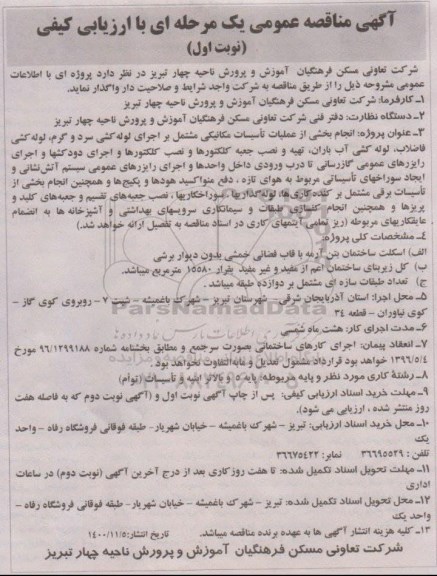 آگهی مناقصه عمومی یک مرحله ای با ارزیابی کیفی
(نوبت اول)
شرکت تعاونی مسکن فرهنگیان آموزش و پرورش ناحیه چهار تبریز در نظر دارد پروژه ای با اطلاعات
عمومی مشروحه ذیل را از طریق مناقصه به شرکت واجد شرایط و صلاحیت دار واگذار نماید.
۱ـ کارفرما: شرکت تعاونی مسکن فرهنگیان آموزش و پرورش ناحیه چهار تبریز
۲ـ دستگاه نظارت: دفتر فنی شرکت تعاونی مسکن فرهنگیان آموزش و پرورش ناحیه چهار تبریز
۳ـ عنوان پروژه: انجام بخشی از عملیات تأسیسات مکانیکی مشتمل بر اجرای لوله کشی سرد و گرم، لوله کشی
فاضلاب، لوله کشی آب باران، تهیه و نصب جعبه کلکتورها و نصب کلکتورها و اجرای دودکشها و اجرای
رایزرهای عمومی گازرسانی تا درب ورودی داخل واحدها و اجرای رایزرهای عمومی سیستم آتش نشانی و
ایجاد سوراخهای تأسیساتی مربوط به هوای تازه ، دفع متواکسید هودها و پکیج ها و همچنین انجام بخشی از
تأسیسات برقی مشتمل بر کنده کاری ها، لوله گذاریها ، سوراخکاریها، نصب جعبه های تقسیم و جعبه های کلید و
پریزها و همچنین انجام کفسازی طبقات و سیمانکاری سرویسهای بهداشتی و آشپزخانه ها به انضمام
عایقکاریهای مربوطه (ریز تمامی آیتمهای کاری در اسناد مناقصه به تفصیل ارائه خواهد شد.)
۴ـ مشخصات کلی پروژه:
الف) اسکلت ساختمان بتن آرمه با قاب فضائی خمشی بدون دیوار برشی
ب) کل زیربنای ساختمان اعم از مفید و غیر مفید بقرار ۱۵۵۸۰ مترمربع میباشد.
ج) تعداد طبقات سازه ای مشتمل بر دوازده طبقه میباشد .
۵ـ محل اجرا: استان آذربایجان شرقی- شهرستان تبریز - شهرک باغمیشه - شیت ۷ - روبروی کوی گاز -
کوی نیاوران - قطعه ۳۴
۶ـ مدت اجرای کار: هشت ماه شمسی
۷ـ انعقاد پیمان: اجرای کارهای ساختمانی بصورت سرجمع و مطابق بخشنامه شماره ۹۶/۱۲۹۹۱۸۸ مورخ
۱۳۹۶/۵/۴ خواهد بود قرارداد مشمول تعدیل و مابه التفاوت نخواهد بود .
۸ـ رشتۀ کاری مورد نظر و پایه مربوطه: پایه ۵ و بالاتر ابنیه و تأسیسات (توأم)
۹ـ مهلت خرید اسناد ارزیابی کیفی: پس از چاپ آگهی نوبت اول و (آگهی نوبت دوم که به فاصله هفت
روز منتشر شده ، ارزیابی می شود).
۱۰ـ محل خرید اسناد ارزیابی: تبریز - شهرک باغمیشه - خیابان شهریار- طبقه فوقانی فروشگاه رفاه - واحد
یک
تلفن : ۳۶۶۹۵۵۲۹ نمابر: ۳۶۶۷۵۴۲۲
۱۱ـ مهلت تحویل اسناد تکمیل شده: تا هفت روزکاری بعد از درج آخرین آگهی (نوبت دوم) در ساعات
اداری
۱۲ـ محل تحویل اسناد تکمیل شده: تبریز - شهرک باغمیشه - خیابان شهریار- طبقه فوقانی فروشگاه رفاه -
واحد یک
۱۳ـ کلیه هزینه انتشار آگهی ها به عهده برنده مناقصه میباشد. تاریخ انتشار: ۱۴۰۰/۱۱/۵
شرکت تعاونی مسکن فرهنگیان آموزش و پرورش ناحیه چهار تبریز
ParsNamadData